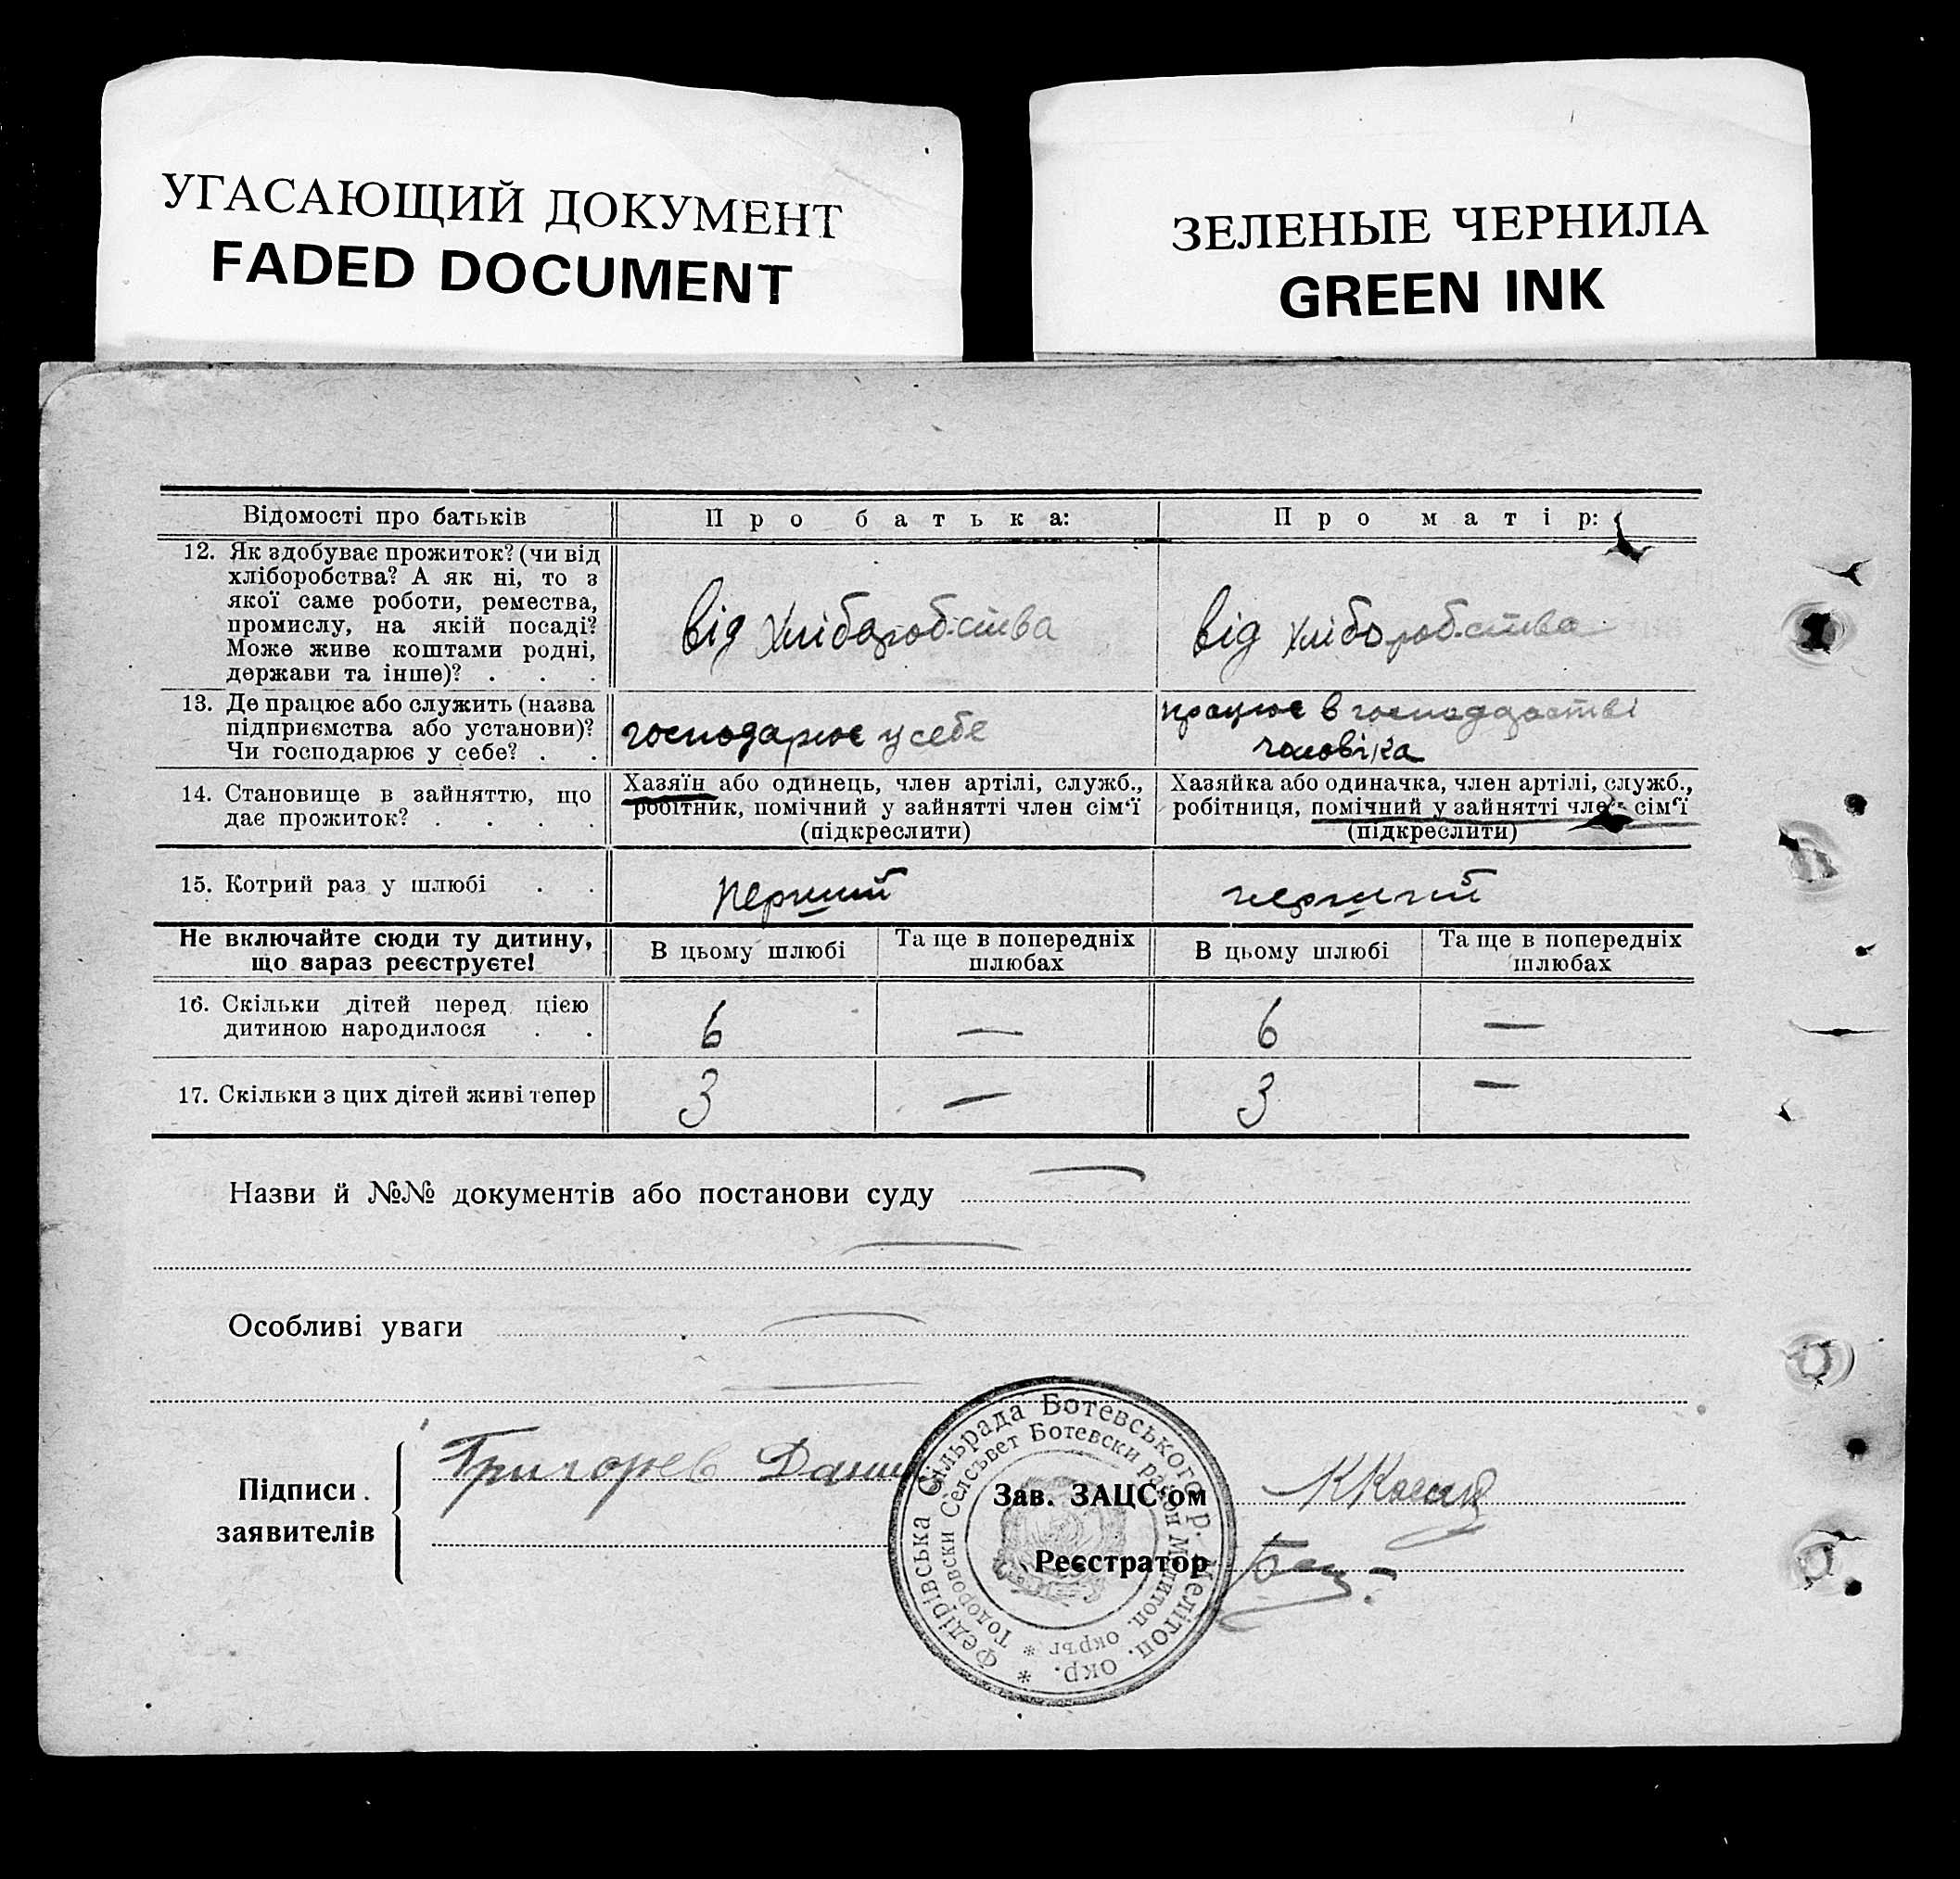 УГАСАЮЩИЙ ДОКУМЕНТ
FADED DOCUMENT
ЗЕЛЕНЫЕ ЧЕРНИЛА
GREEN INK
Відомості про батьків
Про батька:
Про матір:
12. Як здобуває прожиток? (чи від
хліборобства? А як ні, то з
якої саме роботи, ремества,
промислу, на якій посаді?
Може живе коштами родні,
держави та інше)? . . .
від хліборобства
від хліборобства
13. Де працює або служить (назва
підприємства або установи)?
Чи господарює у себе? . .
господарює у себе
працює в господарстві
чоловіка
14. Становище в зайняттю, що
дає прожиток? . . . .
Хазяїн або одинець, член артілі, служб.,
робітник, помічний у зайнятті член сім'ї
(підкреслити)
Хазяйка або одиначка, член артілі, служб.,
робітниця, помічний у зайнятті член сім'ї
(підкреслити)
15. Котрий раз у шлюбі . .
перший
перший
Не включайте сюди ту дитину,
що зараз реєструєте!
В цьому шлюбі
Та ще в попередніх
шлюбах
В цьому шлюбі
Та ще в попередніх
шлюбах
16. Скільки дітей перед цією
дитиною народилося . .
6
—
6
—
17. Скільки з цих дітей живі тепер
3
—
3
—
Назви й №№ документів або постанови суду
Особливі уваги
Підписи
заявителів
Григорев
Зав. ЗАЦС'ом
Реєстратор
Федірівська Сільрада Ботевського р. Мелітоп. окр. *
Тодоровски Селсъвет Ботевски район Мелитоп. окръг *